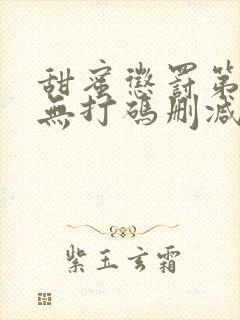 甜蜜懲罰第
無打碼刪減
紫玉玄霜